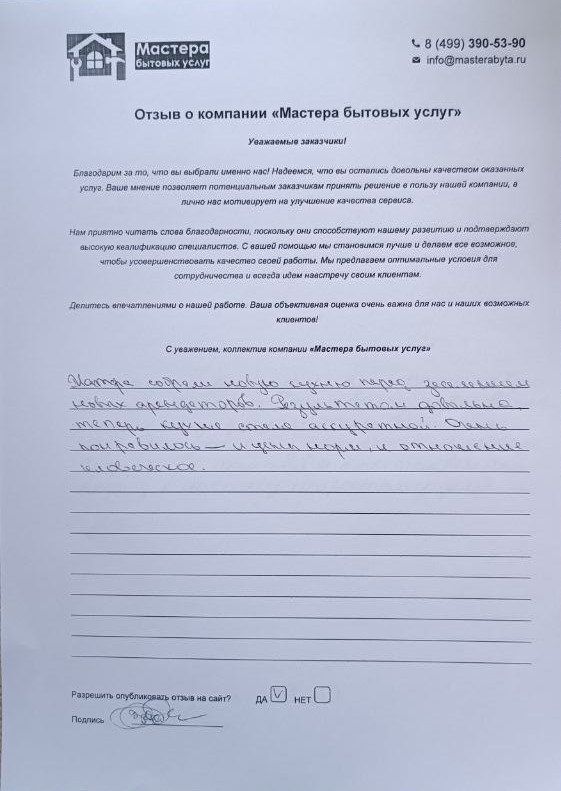 Мастера
бытовых услуг
8 (499) 390-53-90
info@masterabyta.ru
Отзыв о компании «Мастера бытовых услуг»
Уважаемые заказчики!
Благодарим за то, что вы выбрали именно нас! Надеемся, что вы остались довольны качеством оказанных
услуг. Ваше мнение позволяет потенциальным заказчикам принять решение в пользу нашей компании, а
лично нас мотивирует на улучшение качества сервиса.
Нам приятно читать слова благодарности, поскольку они способствуют нашему развитию и подтверждают
высокую квалификацию специалистов. С вашей помощью мы становимся лучше и делаем все возможное,
чтобы усовершенствовать качество своей работы. Мы предлагаем оптимальные условия для
сотрудничества и всегда идем навстречу своим клиентам.
Делитесь впечатлениями о нашей работе. Ваша объективная оценка очень важна для нас и наших возможных
клиентов!
С уважением, коллектив компании «Мастера бытовых услуг»
собрали новую кухню перед заселением
новых арендаторов. Результатом довольна,
теперь кухня стала аккуратной. Очень
понравилось — и цены норм, и отношение
человеческое.
Разрешить опубликовать отзыв на сайт? ДА НЕТ
Подпись